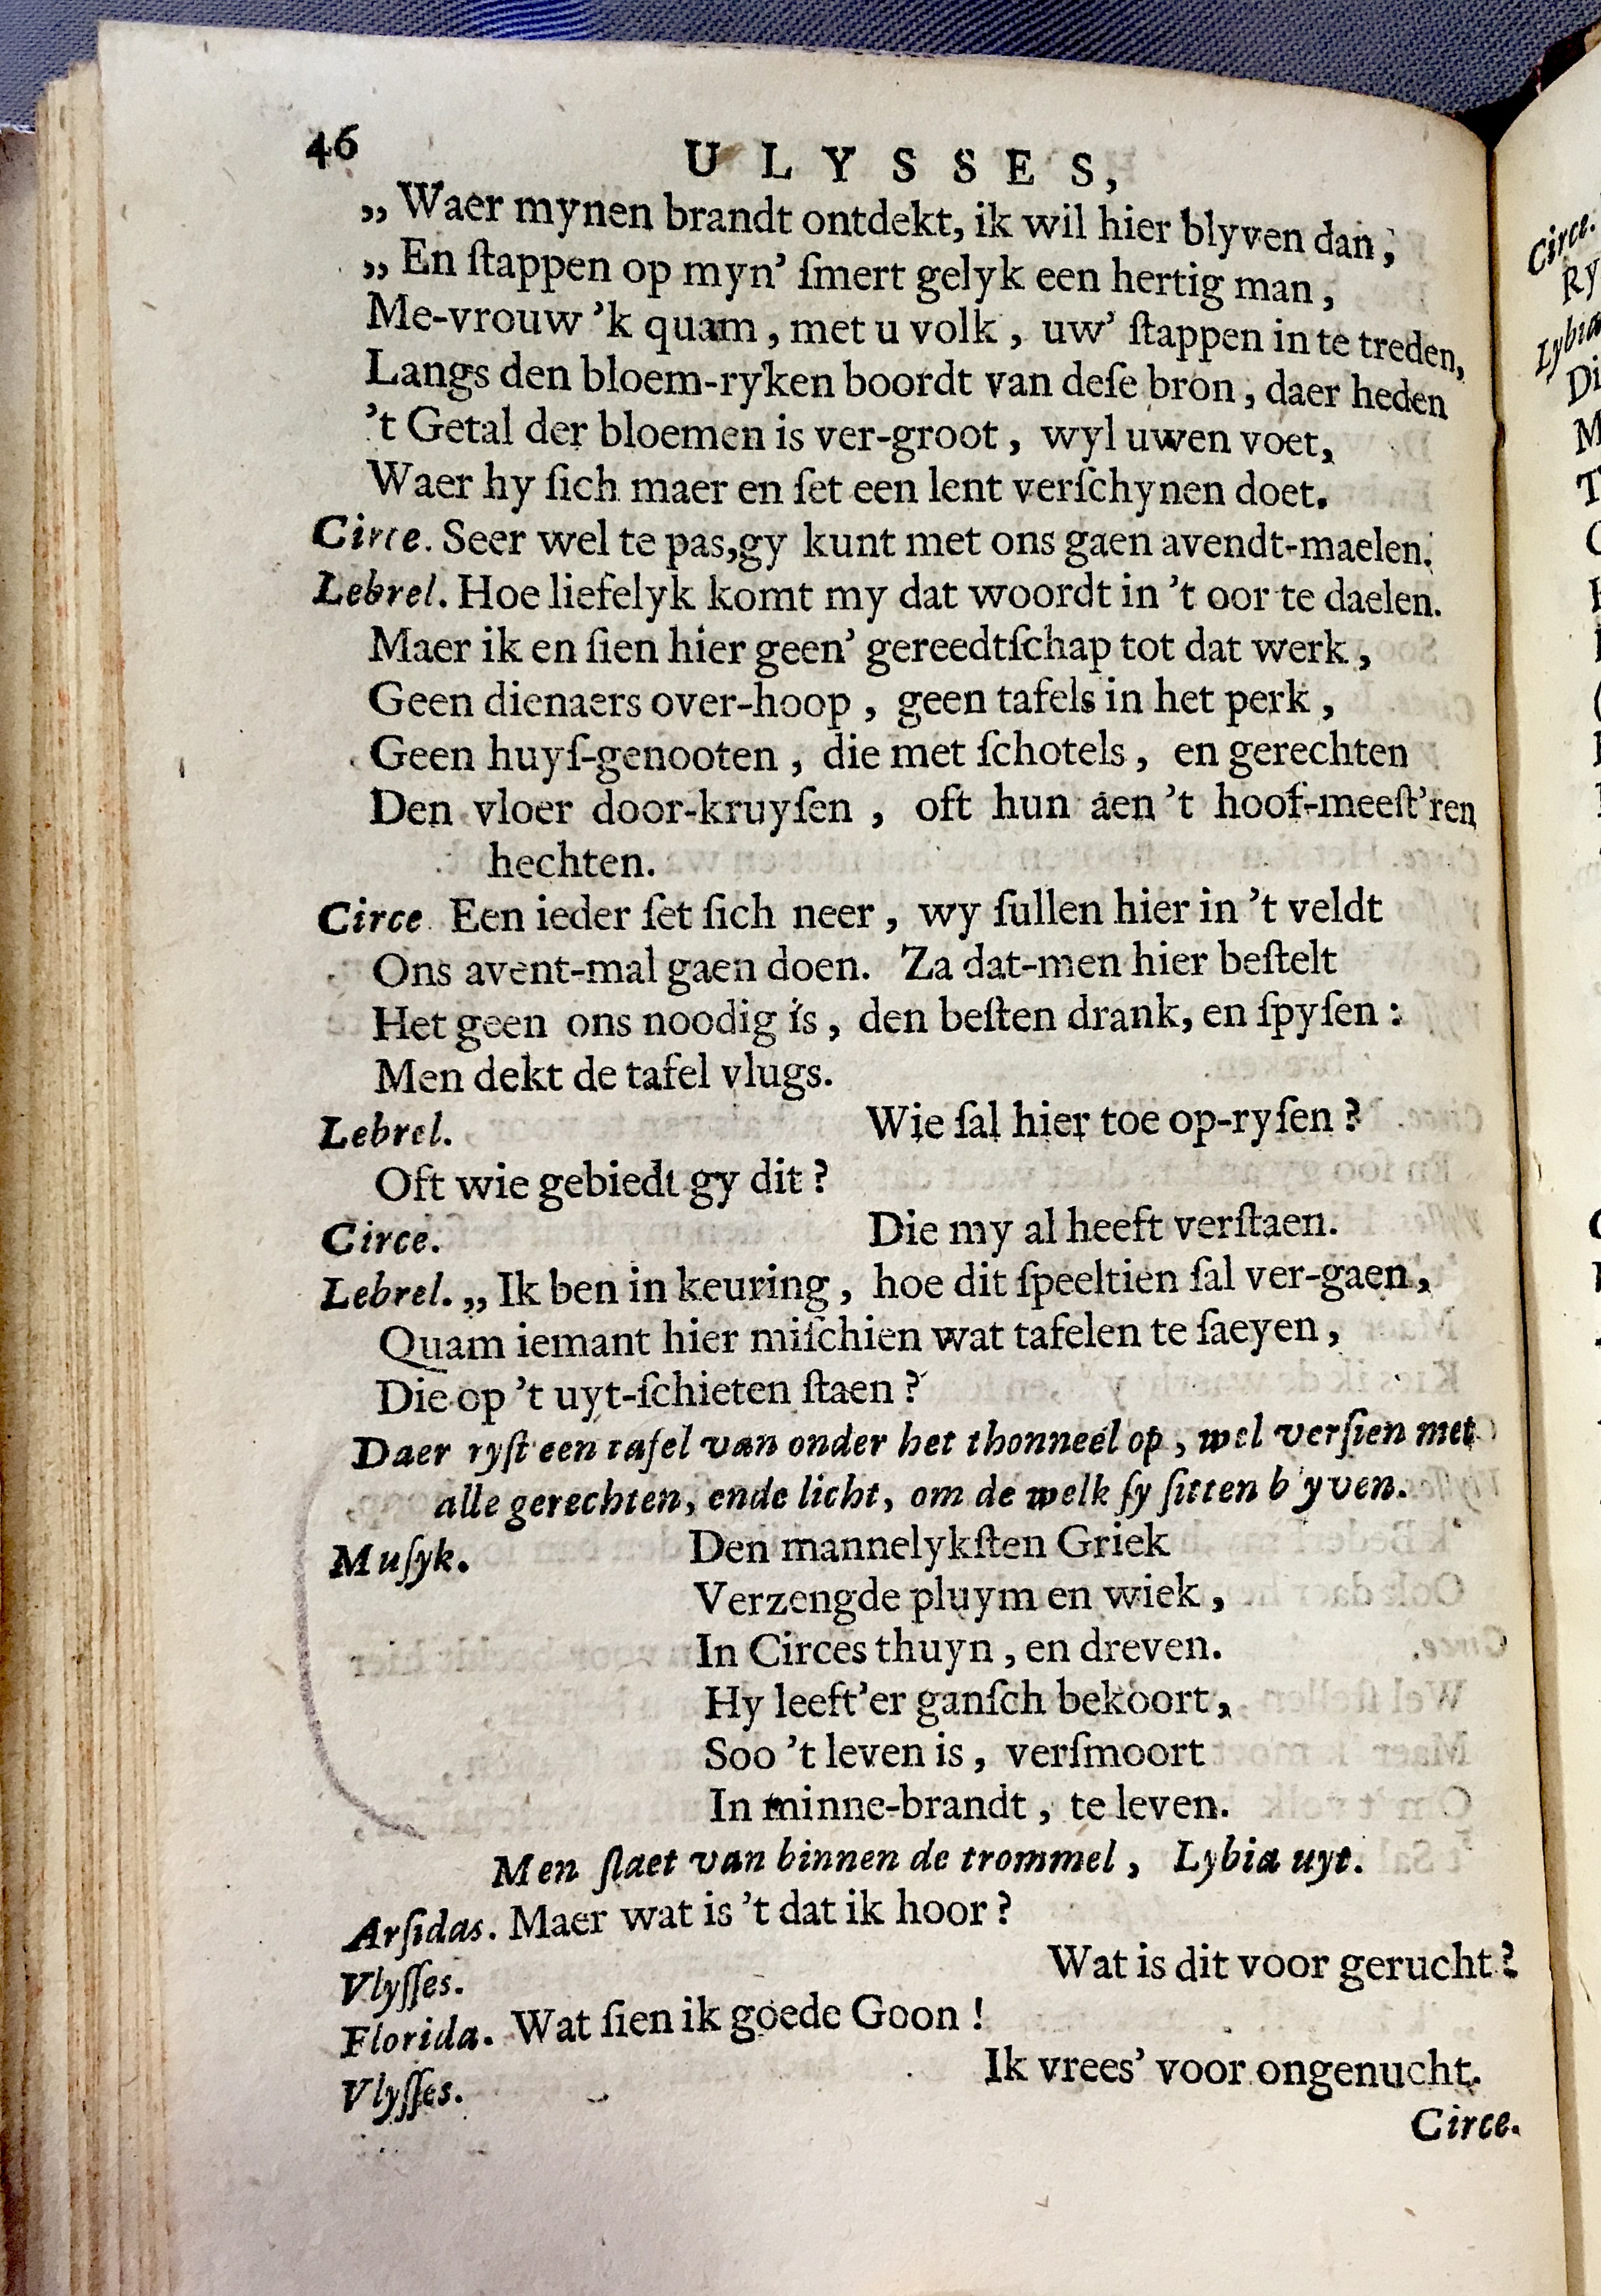 46
ULYSSES,
„ Waer mynen brandt ontdekt, ik wil hier blyven dan,
„ En ſtappen op myn’ ſmert gelyk een hertig man,
Me-vrouw ’k quam, met u volk, uw’ ſtappen in te treden,
Langs den bloem-ryken boordt van deſe bron, daer heden
’t Getal der bloemen is ver-groot, wyl uwen voet,
Waer hy ſich maer en ſet een lent verſchynen doet.
Circe. Seer wel te pas, gy kunt met ons gaen avendt-maelen.
Lebrel. Hoe liefelyk komt my dat woordt in ’t oor te daelen.
Maer ik en ſien hier geen’ gereedtſchap tot dat werk,
Geen dienaers over-hoop, geen tafels in het perk,
Geen huyſ-genooten, die met ſchotels, en gerechten
Den vloer door-kruyſen, oft hun aen ’t hoof-meeſt’ren
hechten.
Circe. Een ieder ſet ſich neer, wy ſullen hier in ’t veldt
Ons avent-mal gaen doen. Za dat-men hier beſtelt
Het geen ons noodig is, den beſten drank, en ſpyſen:
Men dekt de tafel vlugs.
Lebrel. Wie ſal hier toe op-ryſen?
Oft wie gebiedt gy dit?
Circe. Die my al heeft verſtaen.
Lebrel. „ Ik ben in keuring, hoe dit ſpeeltien ſal ver-gaen,
Quam iemant hier miſchien wat tafelen te ſaeyen,
Die op ’t uyt-ſchieten ſtaen?
Daer ryſt een tafel van onder het thonneel op, wel verſien met
alle gerechten, ende licht, om de welk ſy ſitten b’yven.
Muſyk. Den mannelykſten Griek
Verzengde pluym en wiek,
In Circes thuyn, en dreven.
Hy leeft’er ganſch bekoort,
Soo ’t leven is, verſmoort
In minne-brandt, te leven.
Men ſlaet van binnen de trommel, Lybia uyt.
Arſidas. Maer wat is ’t dat ik hoor?
Vlyſſes. Wat is dit voor gerucht?
Florida. Wat ſien ik goede Goon!
Vlyſſes. Ik vrees’ voor ongenucht.
Circe.